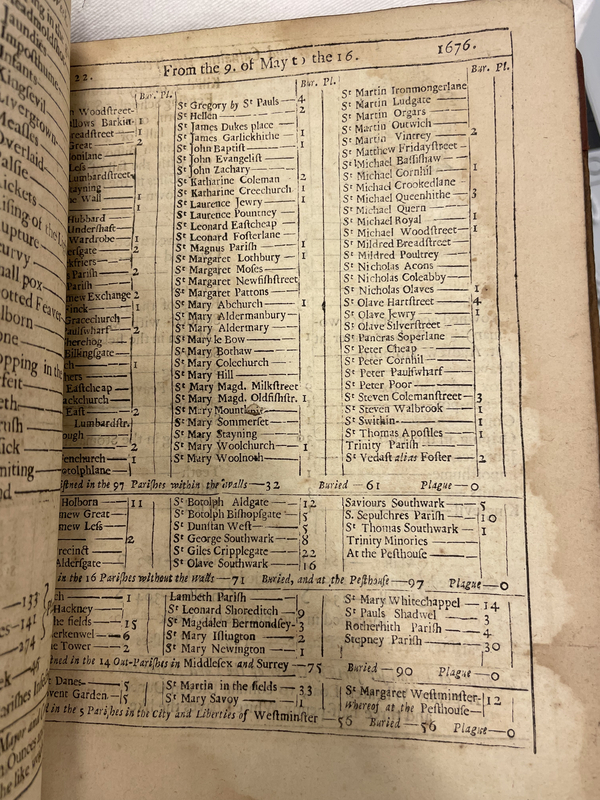 22.
From the 9. of May to the 16.
1676.
Bur. Pl.
n Woodstreet-
llows Barkin- 1
readstreet— 1
Great — 2
omlane
Less
Lumbardstreet
tayning
he Wall — 1
Hubbard
Undershaft
Wardrobe — 1
ersgate — 2
kfriers
Parish — 2
Parish
new Exchange 2
finck — 1
Gracechurch
aulswharf — 2
therehog
Billingsgate
ch — 1
hers
Eastcheap
ackchurch
East — 2
Lumbardstr.
ough
2
enchurch — 1
otolphlane
Bur. Pl.
St Gregory by St Pauls — 4
St Hellen — 2
St James Dukes place — 1
St James Garlickhithe — 1
St John Baptist — 1
St John Evangelist
St John Zachary
St Katharine Coleman — 2
St Katharine Creechurch 1
St Laurence Jewry — 1
St Laurence Pountney
St Leonard Eastcheap
St Leonard Fosterlane
St Magnus Parish — 1
St Margaret Lothbury — 1
St Margaret Moses
St Margaret Newfishstreet
St Margaret Pattons
St Mary Abchurch — 1
St Mary Aldermanbury
St Mary Aldermary
St Mary le Bow
St Mary Bothaw
St Mary Colechurch
St Mary Hill
St Mary Magd. Milkstreet
St Mary Magd. Oldfishstr. 1
St Mary Mounthaw
St Mary Sommerset
St Mary Stayning
St Mary Woolchurch — 1
St Mary Woolnoth
Bur. Pl.
St Martin Ironmongerlane
St Martin Ludgate
St Martin Orgars
St Martin Outwich
St Martin Vintrey — 2
St Matthew Fridaystreet
St Michael Bassishaw
St Michael Cornhil — 1
St Michael Crookedlane
St Michael Queenhithe — 3
St Michael Quern
St Michael Royal — 1
St Michael Woodstreet — 1
St Mildred Breadstreet
St Mildred Poultrey
St Nicholas Acons
St Nicholas Coleabby
St Nicholas Olaves — 1
St Olave Hartstreet — 4
St Olave Jewry — 1
St Olave Silverstreet
St Pancras Soperlane
St Peter Cheap
St Peter Cornhil
St Peter Paulswharf
St Peter Poor
St Steven Colemanstreet — 3
St Steven Walbrook — 1
St Swithin — 1
St Thomas Apostles — 1
Trinity Parish
St Vedast alias Foster — 2
istned in the 97 Parishes within the Walls — 32 Buried — 61 Plague — 0
Holborn — 11
mew Great
mew Less
2
recinct
Aldersgate
St Botolph Aldgate — 12
St Botolph Bishopsgate 5
St Dunstan West — 5
St George Southwark — 8
St Giles Cripplegate — 22
St Olave Southwark — 16
Saviours Southwark — 5
S. Sepulchres Parish — 10
St Thomas Southwark 1
Trinity Minories
At the Pesthouse
in the 16 Parishes without the Walls — 71 Buried, and at the Pesthouse — 97 Plague — 0
ch — 1
Hackney
he fields — 15
erkenwel — 6
he Tower — 2
Lambeth Parish
St Leonard Shoreditch — 9
St Magdalen Bermondsey- 3
St Mary Islington — 2
St Mary Newington — 1
St Mary Whitechappel — 14
St Pauls Shadwel — 3
Rotherhith Parish — 4
Stepney Parish — 30
ned in the 14 Out-Parishes in Middlesex and Surrey — 75 Buried — 90 Plague — 0
t Danes — 5
vent Garden — 5
St Martin in the fields — 33
St Mary Savoy — 1
St Margaret Westminster- 12
Whereof at the Pesthouse
d in the 5 Parishes in the City and Liberties of Westminster — 56 Buried — 56 Plague — 0